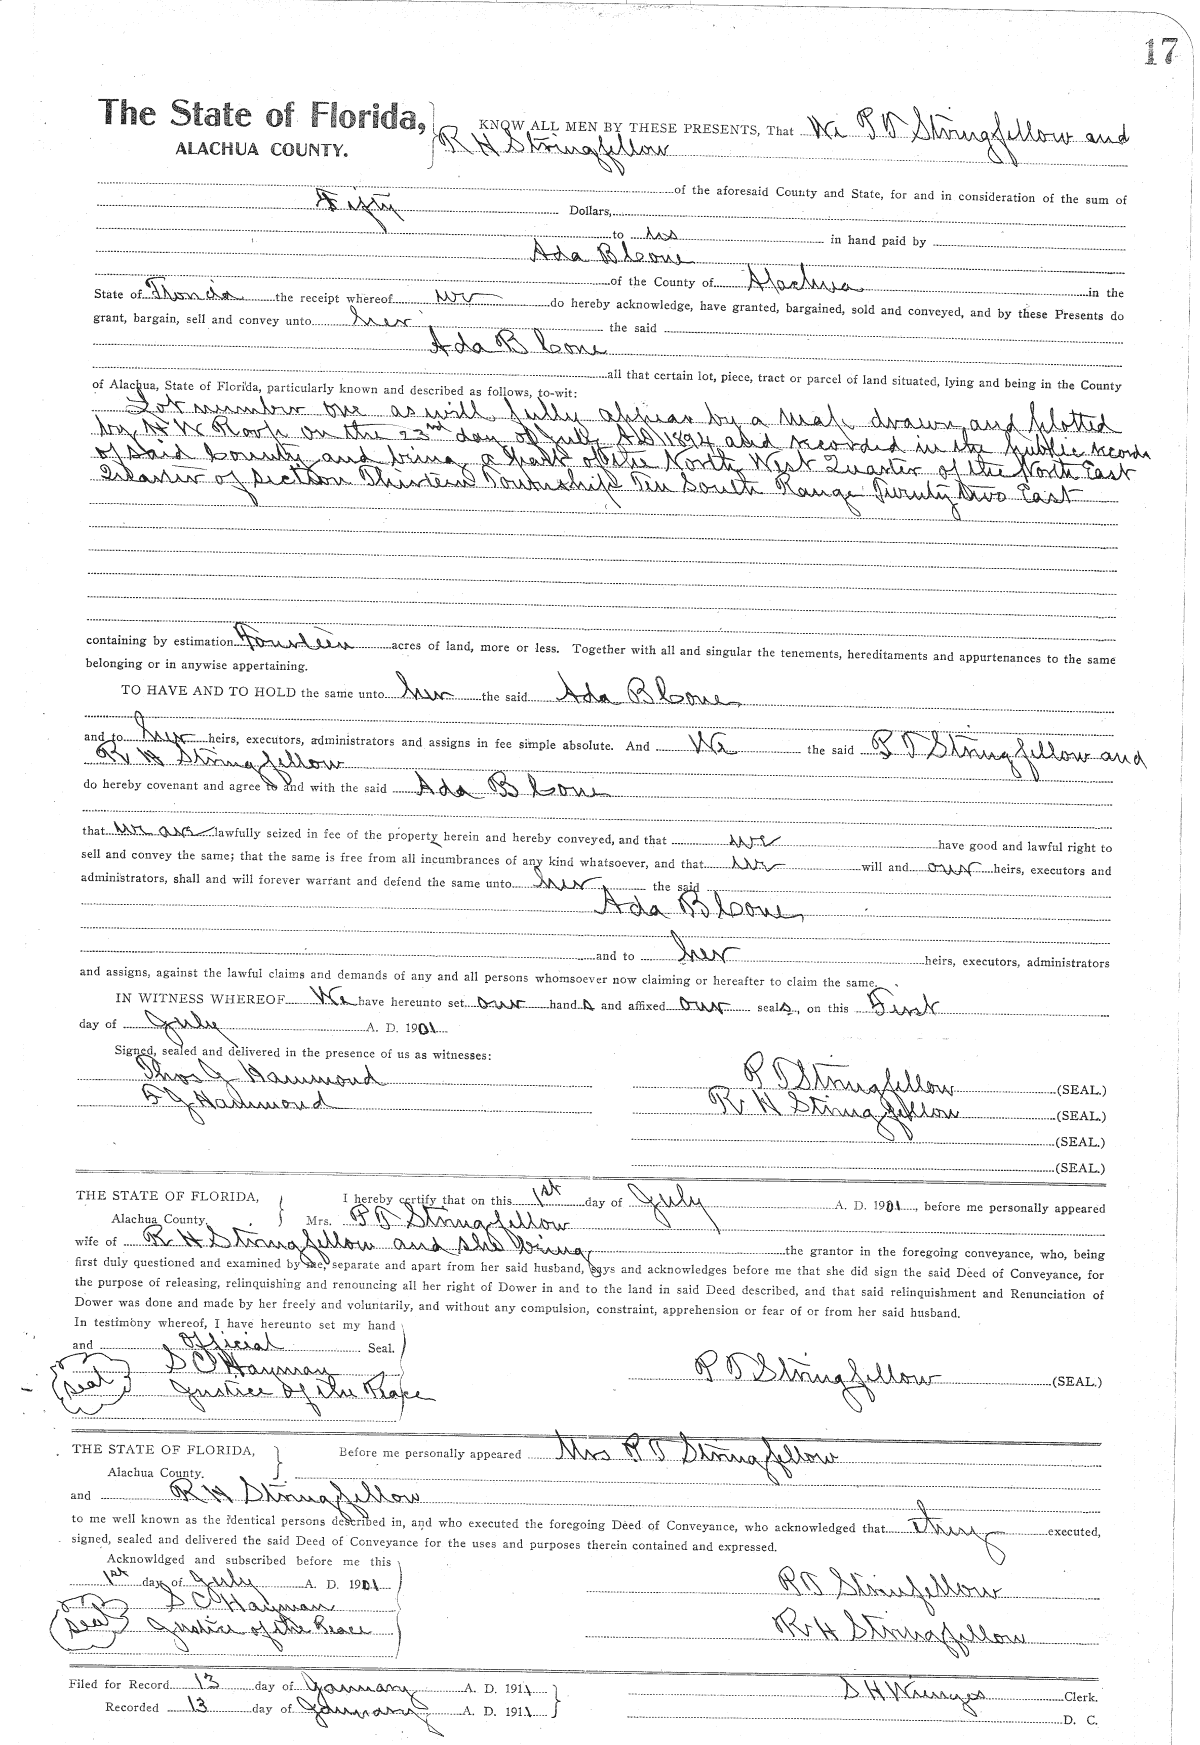 17
The State of Florida,
ALACHUA COUNTY.
KNOW ALL MEN BY THESE PRESENTS, That We P D Stringfellow and
R H Stringfellow
of the aforesaid County and State, for and in consideration of the sum of
Fifty Dollars,
to us in hand paid by
Ada B Cone
of the County of Alachua in the
State of Florida the receipt whereof we do hereby acknowledge, have granted, bargained, sold and conveyed, and by these Presents do
grant, bargain, sell and convey unto her the said
Ada B Cone
all that certain lot, piece, tract or parcel of land situated, lying and being in the County
of Alachua, State of Florida, particularly known and described as follows, to-wit:
Lot number one as will fully appear by a map drawn and plotted
by N W Roop on the 23rd day of July AD 1894 and recorded in the public records
of Said County and being a part of the North West Quarter of the North East
Quarter of Section Thirteen Township Ten South Range Twenty two East
containing by estimation Fourteen acres of land, more or less. Together with all and singular the tenements, hereditaments and appurtenances to the same
belonging or in anywise appertaining.
TO HAVE AND TO HOLD the same unto her the said Ada B Cone
and to her heirs, executors, administrators and assigns in fee simple absolute. And We the said P D Stringfellow and
R H Stringfellow
do hereby covenant and agree to and with the said Ada B Cone
that we are lawfully seized in fee of the property herein and hereby conveyed, and that we have good and lawful right to
sell and convey the same; that the same is free from all incumbrances of any kind whatsoever, and that we will and our heirs, executors and
administrators, shall and will forever warrant and defend the same unto her the said
Ada B Cone
and to her heirs, executors, administrators
and assigns, against the lawful claims and demands of any and all persons whomsoever now claiming or hereafter to claim the same.
IN WITNESS WHEREOF We have hereunto set our hands and affixed our seals, on this First
day of July A. D. 1901
Signed, sealed and delivered in the presence of us as witnesses:
Thos J Hammond
P D Stringfellow (SEAL.)
J Hammond
R H Stringfellow (SEAL.)
(SEAL.)
(SEAL.)
THE STATE OF FLORIDA,
Alachua County.
I hereby certify that on this 1st day of July A. D. 1901, before me personally appeared
Mrs. P D Stringfellow
wife of R H Stringfellow and she being the grantor in the foregoing conveyance, who, being
first duly questioned and examined by me, separate and apart from her said husband, says and acknowledges before me that she did sign the said Deed of Conveyance, for
the purpose of releasing, relinquishing and renouncing all her right of Dower in and to the land in said Deed described, and that said relinquishment and Renunciation of
Dower was done and made by her freely and voluntarily, and without any compulsion, constraint, apprehension or fear of or from her said husband.
In testimony whereof, I have hereunto set my hand
and Official Seal.
S C Hayman
Seal Justice of the Peace
P D Stringfellow (SEAL.)
THE STATE OF FLORIDA,
Alachua County.
Before me personally appeared Mrs P D Stringfellow
and R H Stringfellow
to me well known as the identical persons described in, and who executed the foregoing Deed of Conveyance, who acknowledged that they executed,
signed, sealed and delivered the said Deed of Conveyance for the uses and purposes therein contained and expressed.
Acknowldged and subscribed before me this
1st day of July A. D. 1901
P D Strinfellow
S C Hayman
Seal Justice of the Peace
R H Stringfellow
Filed for Record 13 day of January A. D. 1911
S H Wienges Clerk.
Recorded 13 day of January A. D. 1911
D. C.